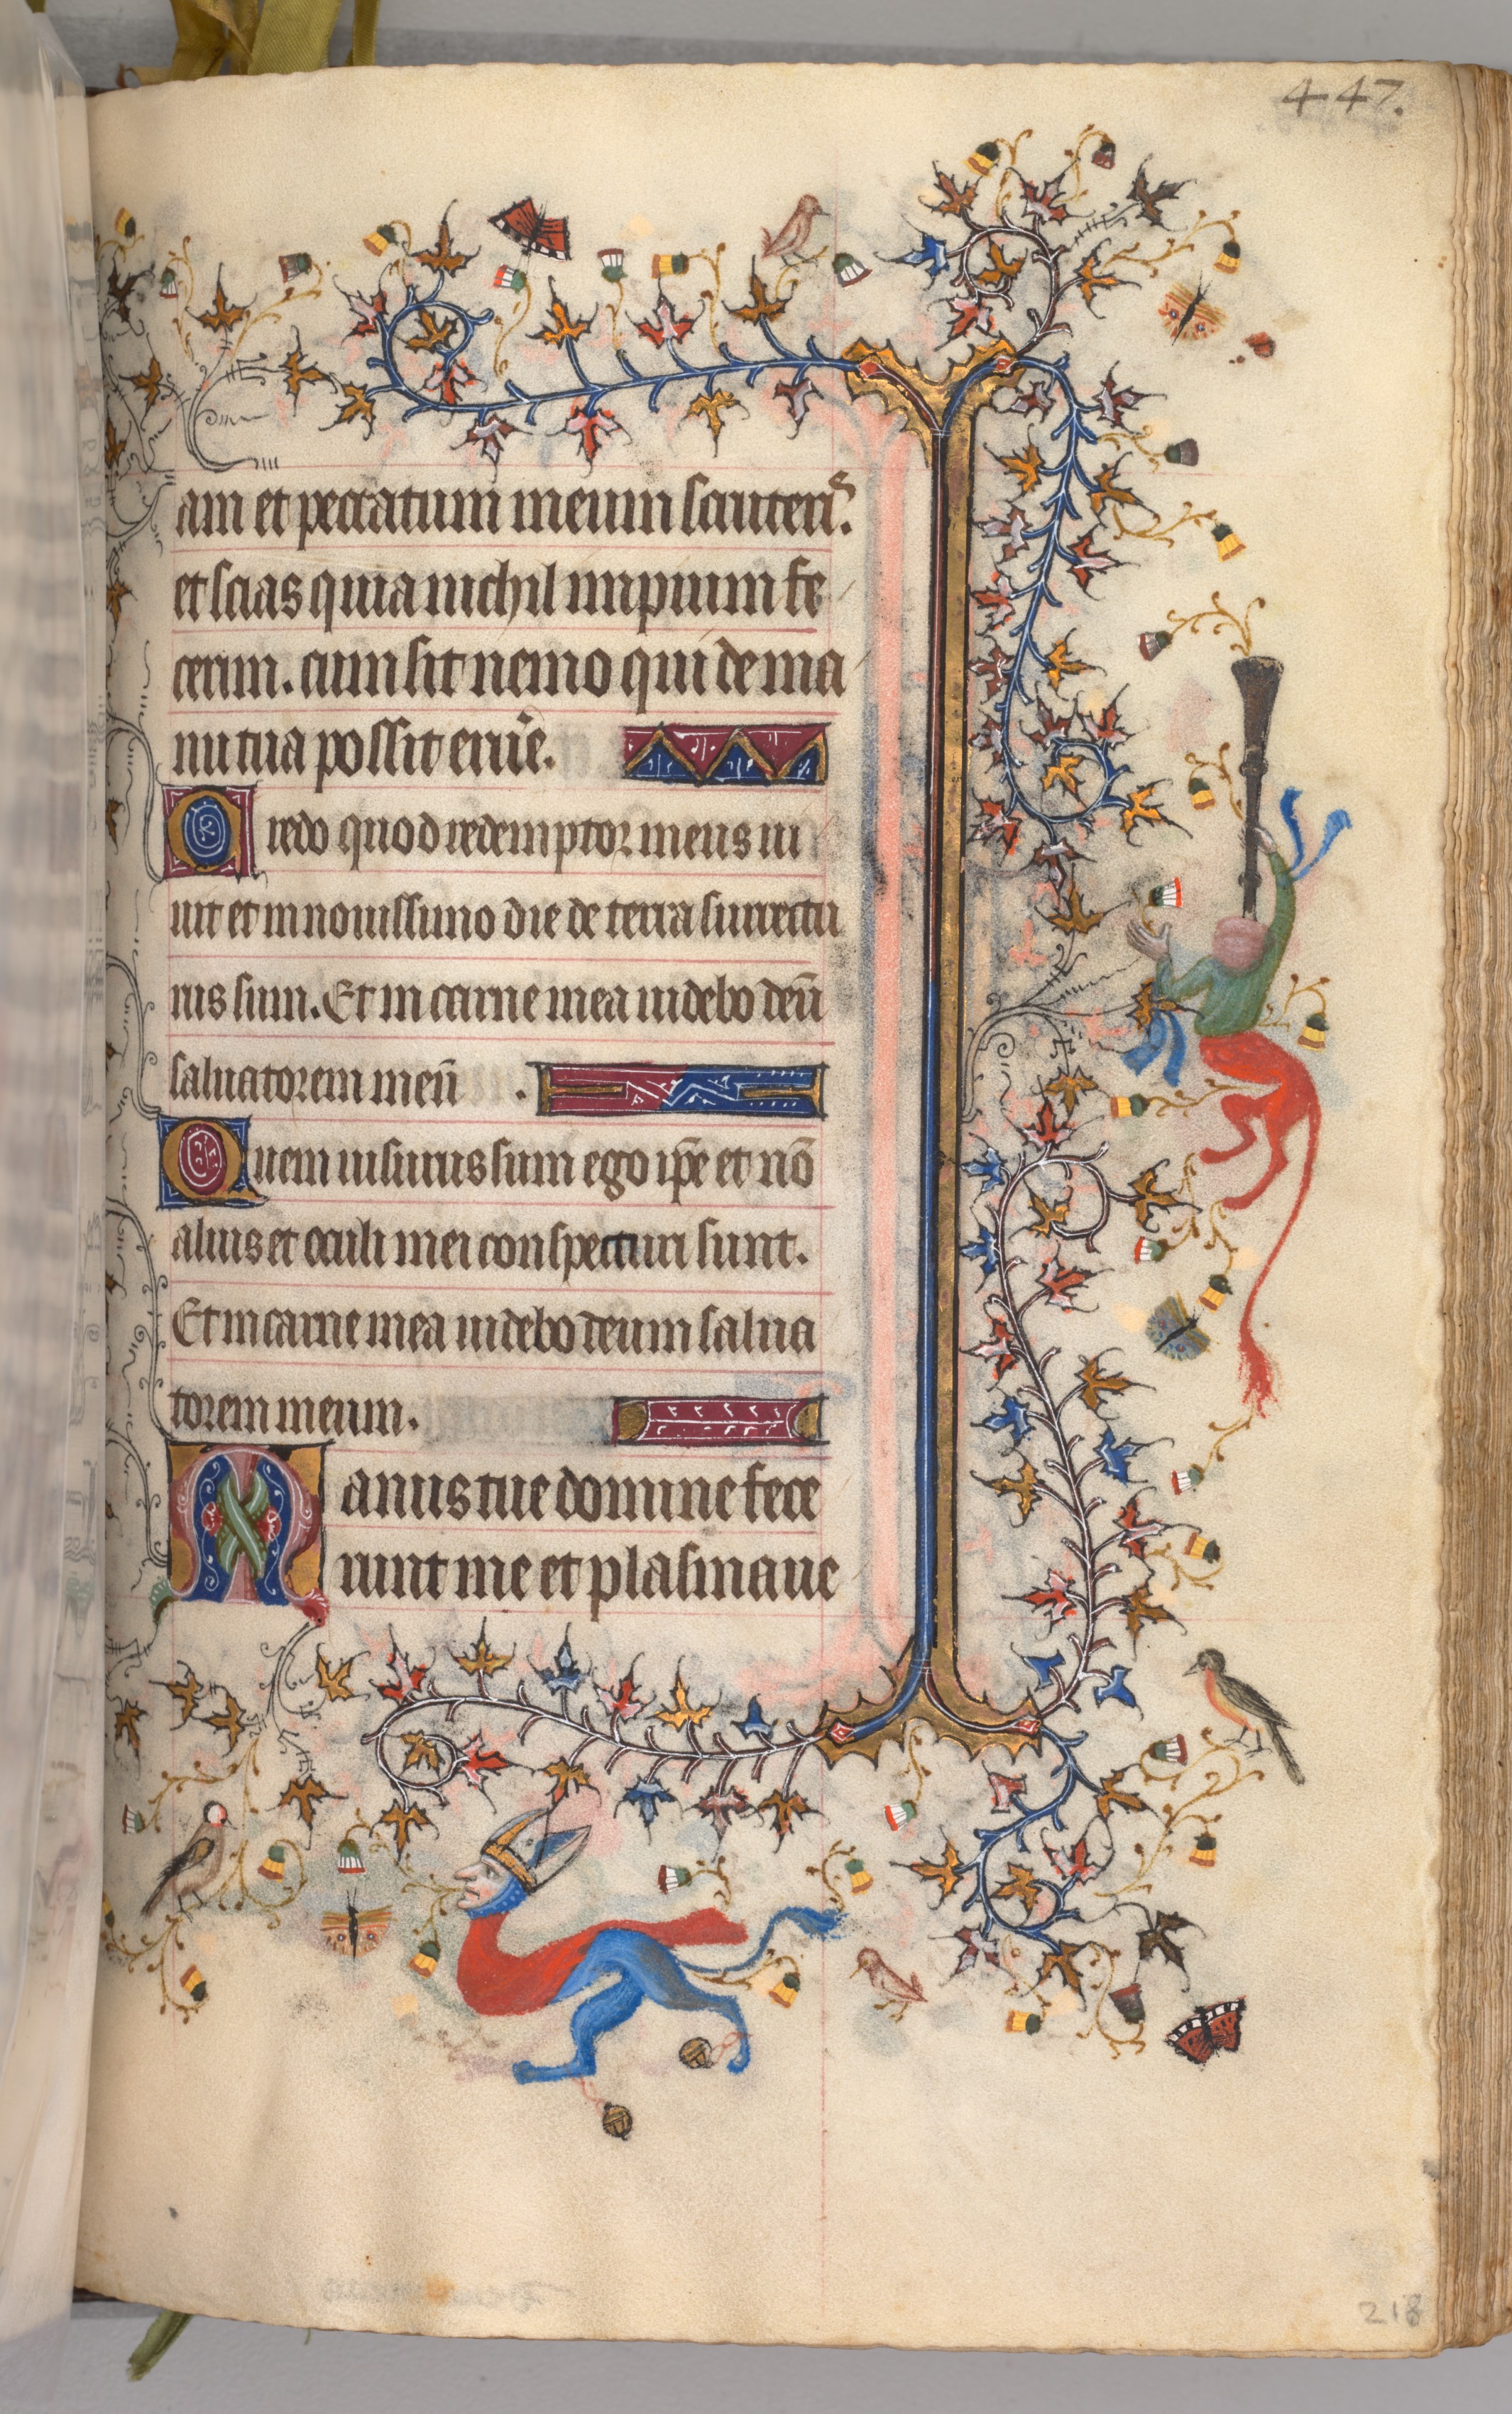 447.
am et peccatum meum scruteris.
et scias quia nichil impium fe
cerim. cum sit nemo qui de ma
nu tua possit eruere.
Credo quod redemptor meus vi
uit et in nouissimo die de terra surrectu
rus sum. Et in carne mea uidebo deū
saluatorem meū.
Quem uisurus sum ego ip̄e et nō
alius et oculi mei conspecturi sunt.
Et in carne mea uidebo deum salua
torem meum.
Manus tue domine fece
runt me et plasmaue
218